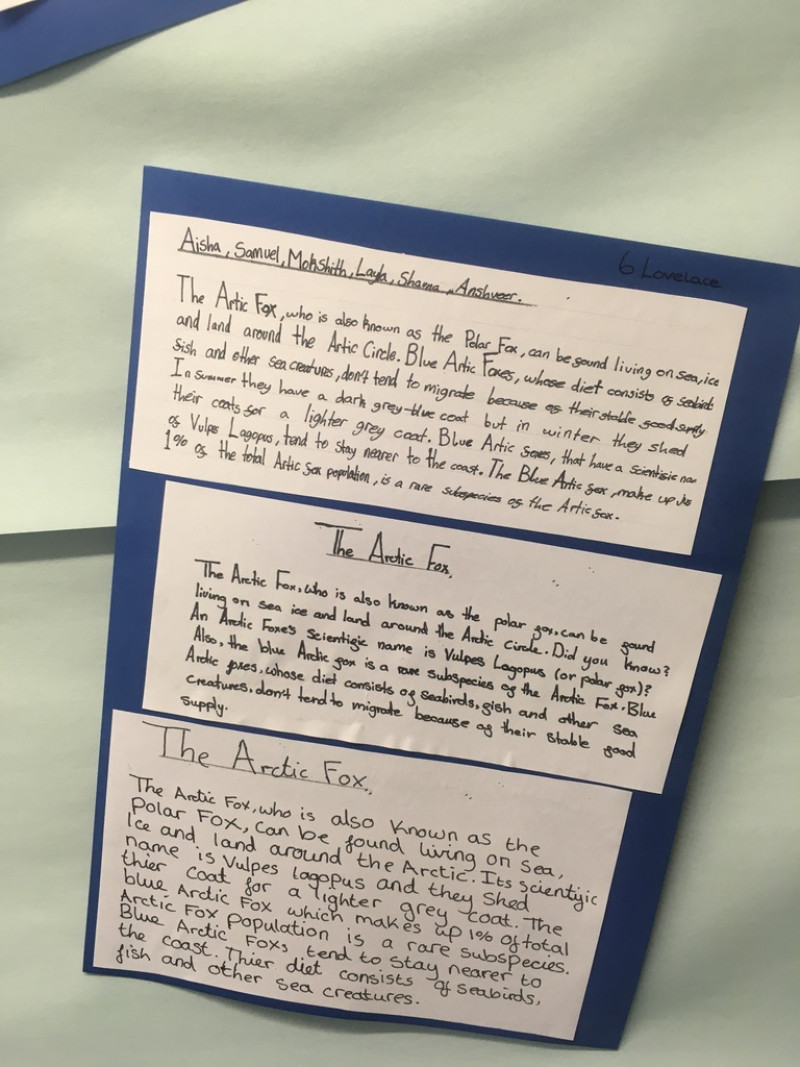 6 Lovelace
Aisha, Samuel, Mokshith, Layla, Sharna, Anshveer.
The Artic Fox, who is also known as the Polar Fox, can be found living on sea, ice
and land around the Artic Circle. Blue Artic Foxes, whose diet consists of seabirds
fish and other sea creatures, don't tend to migrate because of their stable food supply
In summer they have a dark grey-blue coat but in winter they shed
their coats for a lighter grey coat. Blue Artic foxes, that have a scientific nam
of Vulpes Lagopus, tend to stay nearer to the coast. The Blue Artic fox, make up
1% of the total Artic fox population, is a rare subspecies of the Artic fox.
The Arctic Fox.
The Arctic Fox, who is also known as the polar fox, can be found
living on sea ice and land around the Arctic Circle. Did you know?
An Arctic Foxe's scientific name is Vulpes Lagopus (or polar fox)?
Also, the blue Arctic fox is a rare subspecies of the Arctic Fox. Blue
Arctic foxes, whose diet consists of seabirds, fish and other sea
creatures, don't tend to migrate because of their stable food
supply.
The Arctic Fox.
The Arctic Fox, who is also known as the
Polar Fox, can be found living on sea,
Ice and land around the Arctic. Its scientific
name is Vulpes lagopus and they shed
thier coat for a lighter grey coat. The
blue Arctic Fox which makes up 1% of total
Arctic Fox population is a rare subspecies.
Blue Arctic Foxs tend to stay nearer to
the coast. Thier diet consists of seabirds,
fish and other sea creatures.